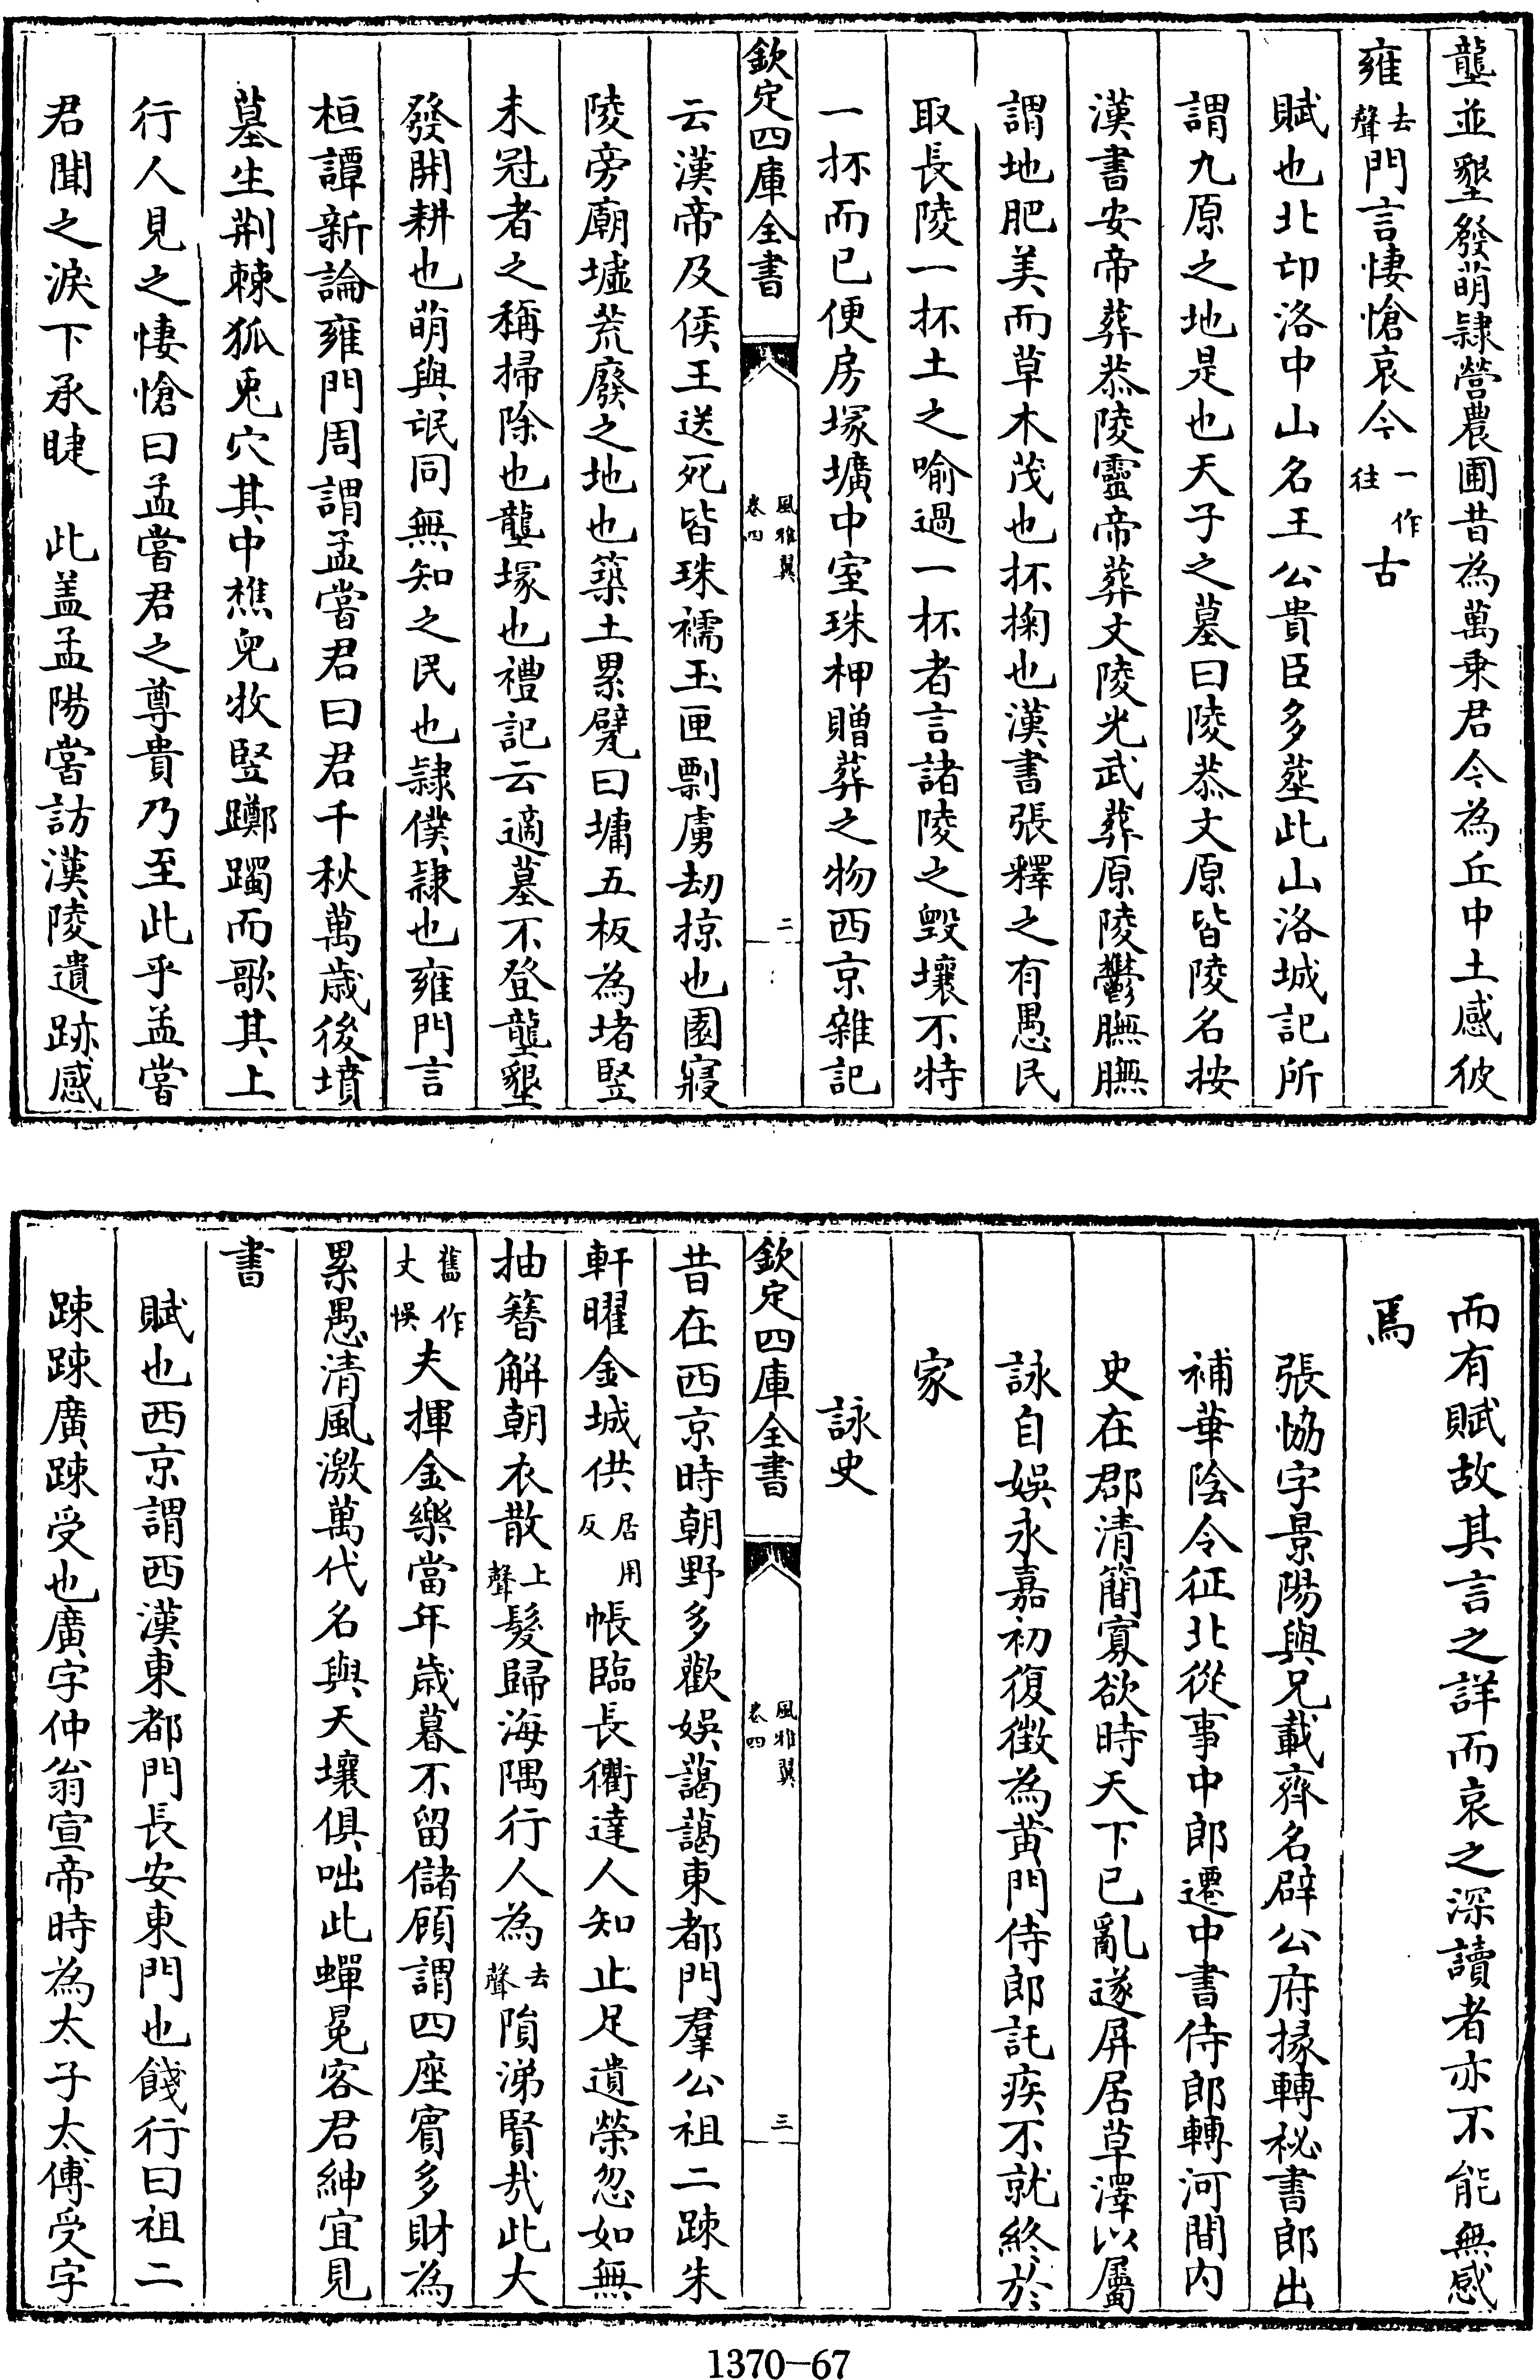 壟並墾發萌隷營農圃昔為萬乗君今為丘中土感彼
雍去聲門言悽愴哀今一作往古
賦也北邙洛中山名王公貴臣多塟此山洛城記所
謂九原之地是也天子之墓曰陵恭文原皆陵名按
漢書安帝葬恭陵靈帝葬文陵光武葬原陵鬱膴膴
謂地肥美而草木茂也抔掬也漢書張釋之有愚民
取長陵一抔土之喻過一抔者言諸陵之毁壤不特
一抔而已便房塚壙中室珠柙贈葬之物西京雜記
欽定四庫全書
風雅翼
卷四
二
云漢帝及侯王送死皆珠襦玉匣剽虜劫掠也園寢
陵旁廟墟荒廢之地也築土累甓曰墉五板為堵竪
未冠者之稱掃除也壟塚也禮記云適墓不登壟墾
發開耕也萌與氓同無知之民也隷僕隷也雍門言
桓譚新論雍門周謂孟嘗君曰君千秋萬歲後墳
墓生荆棘狐兎穴其中樵兒牧竪躑躅而歌其上
行人見之悽愴曰孟嘗君之尊貴乃至此乎孟嘗
君聞之淚下承睫　此盖孟陽嘗訪漢陵遺跡感
而有賦故其言之詳而哀之深讀者亦不能無感
焉
張恊字景陽與兄載齊名辟公府掾轉秘書郎出
補華陰令征北從事中郎遷中書侍郎轉河間内
史在郡清簡寡欲時天下已亂遂屏居草澤以屬
詠自娱永嘉初復徴為黄門侍郎託疾不就終於
家
詠史
欽定四庫全書
風雅翼
卷四
三
昔在西京時朝野多歡娱藹藹東都門羣公祖二踈朱
軒曜金城供居用反帳臨長衢達人知止足遺榮忽如無
抽簪解朝衣散上聲髮歸海隅行人為去聲隕涕賢哉此大
舊作丈悞夫揮金樂當年歲暮不留儲顧謂四座賓多財為
累愚清風激萬代名與天壤俱咄此蟬冕客君紳宜見
書
賦也西京謂西漢東都門長安東門也餞行曰祖二
踈踈廣踈受也廣字仲翁宣帝時為太子太傅受字
1370—67